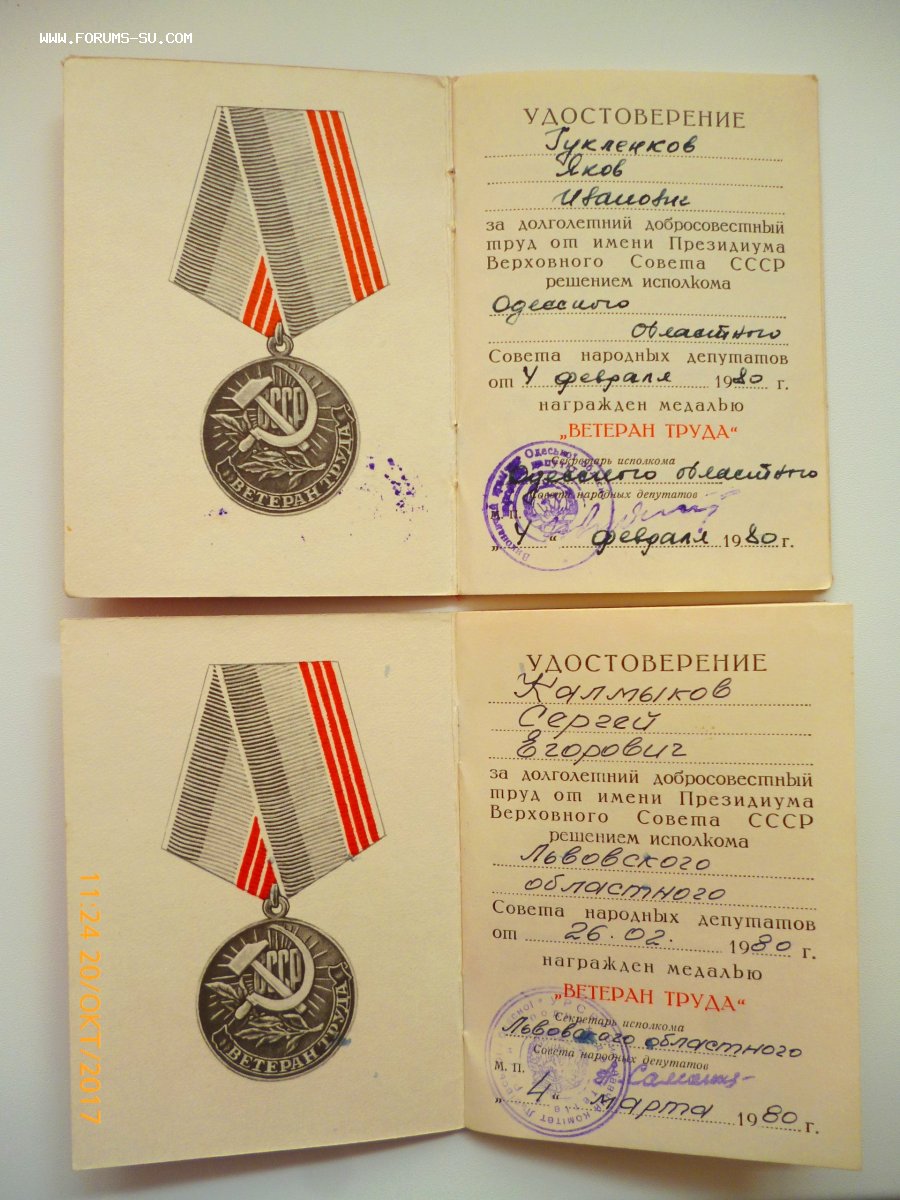 WWW.FORUMS-SU.COM
СССР
ВЕТЕРАН ТРУДА
УДОСТОВЕРЕНИЕ
Гукленков
Яков
Иванович
за долголетний добросовестный
труд от имени Президиума
Верховного Совета СССР
решением исполкома
Одесского
областного
Совета народных депутатов
от 4 февраля 1980 г.
награжден медалью
„ВЕТЕРАН ТРУДА“
Секретарь исполкома
Одесского областного
Совета народных депутатов
М. П.
„4“ февраля 1980 г.
СССР
ВЕТЕРАН ТРУДА
11:24 20/ОКТ/2017
УДОСТОВЕРЕНИЕ
Калмыков
Сергей
Егорович
за долголетний добросовестный
труд от имени Президиума
Верховного Совета СССР
решением исполкома
Львовского
областного
Совета народных депутатов
от 26.02. 1980 г.
награжден медалью
„ВЕТЕРАН ТРУДА“
Секретарь исполкома
Львовского областного
Совета народных депутатов
М. П.
„4“ марта 1980 г.